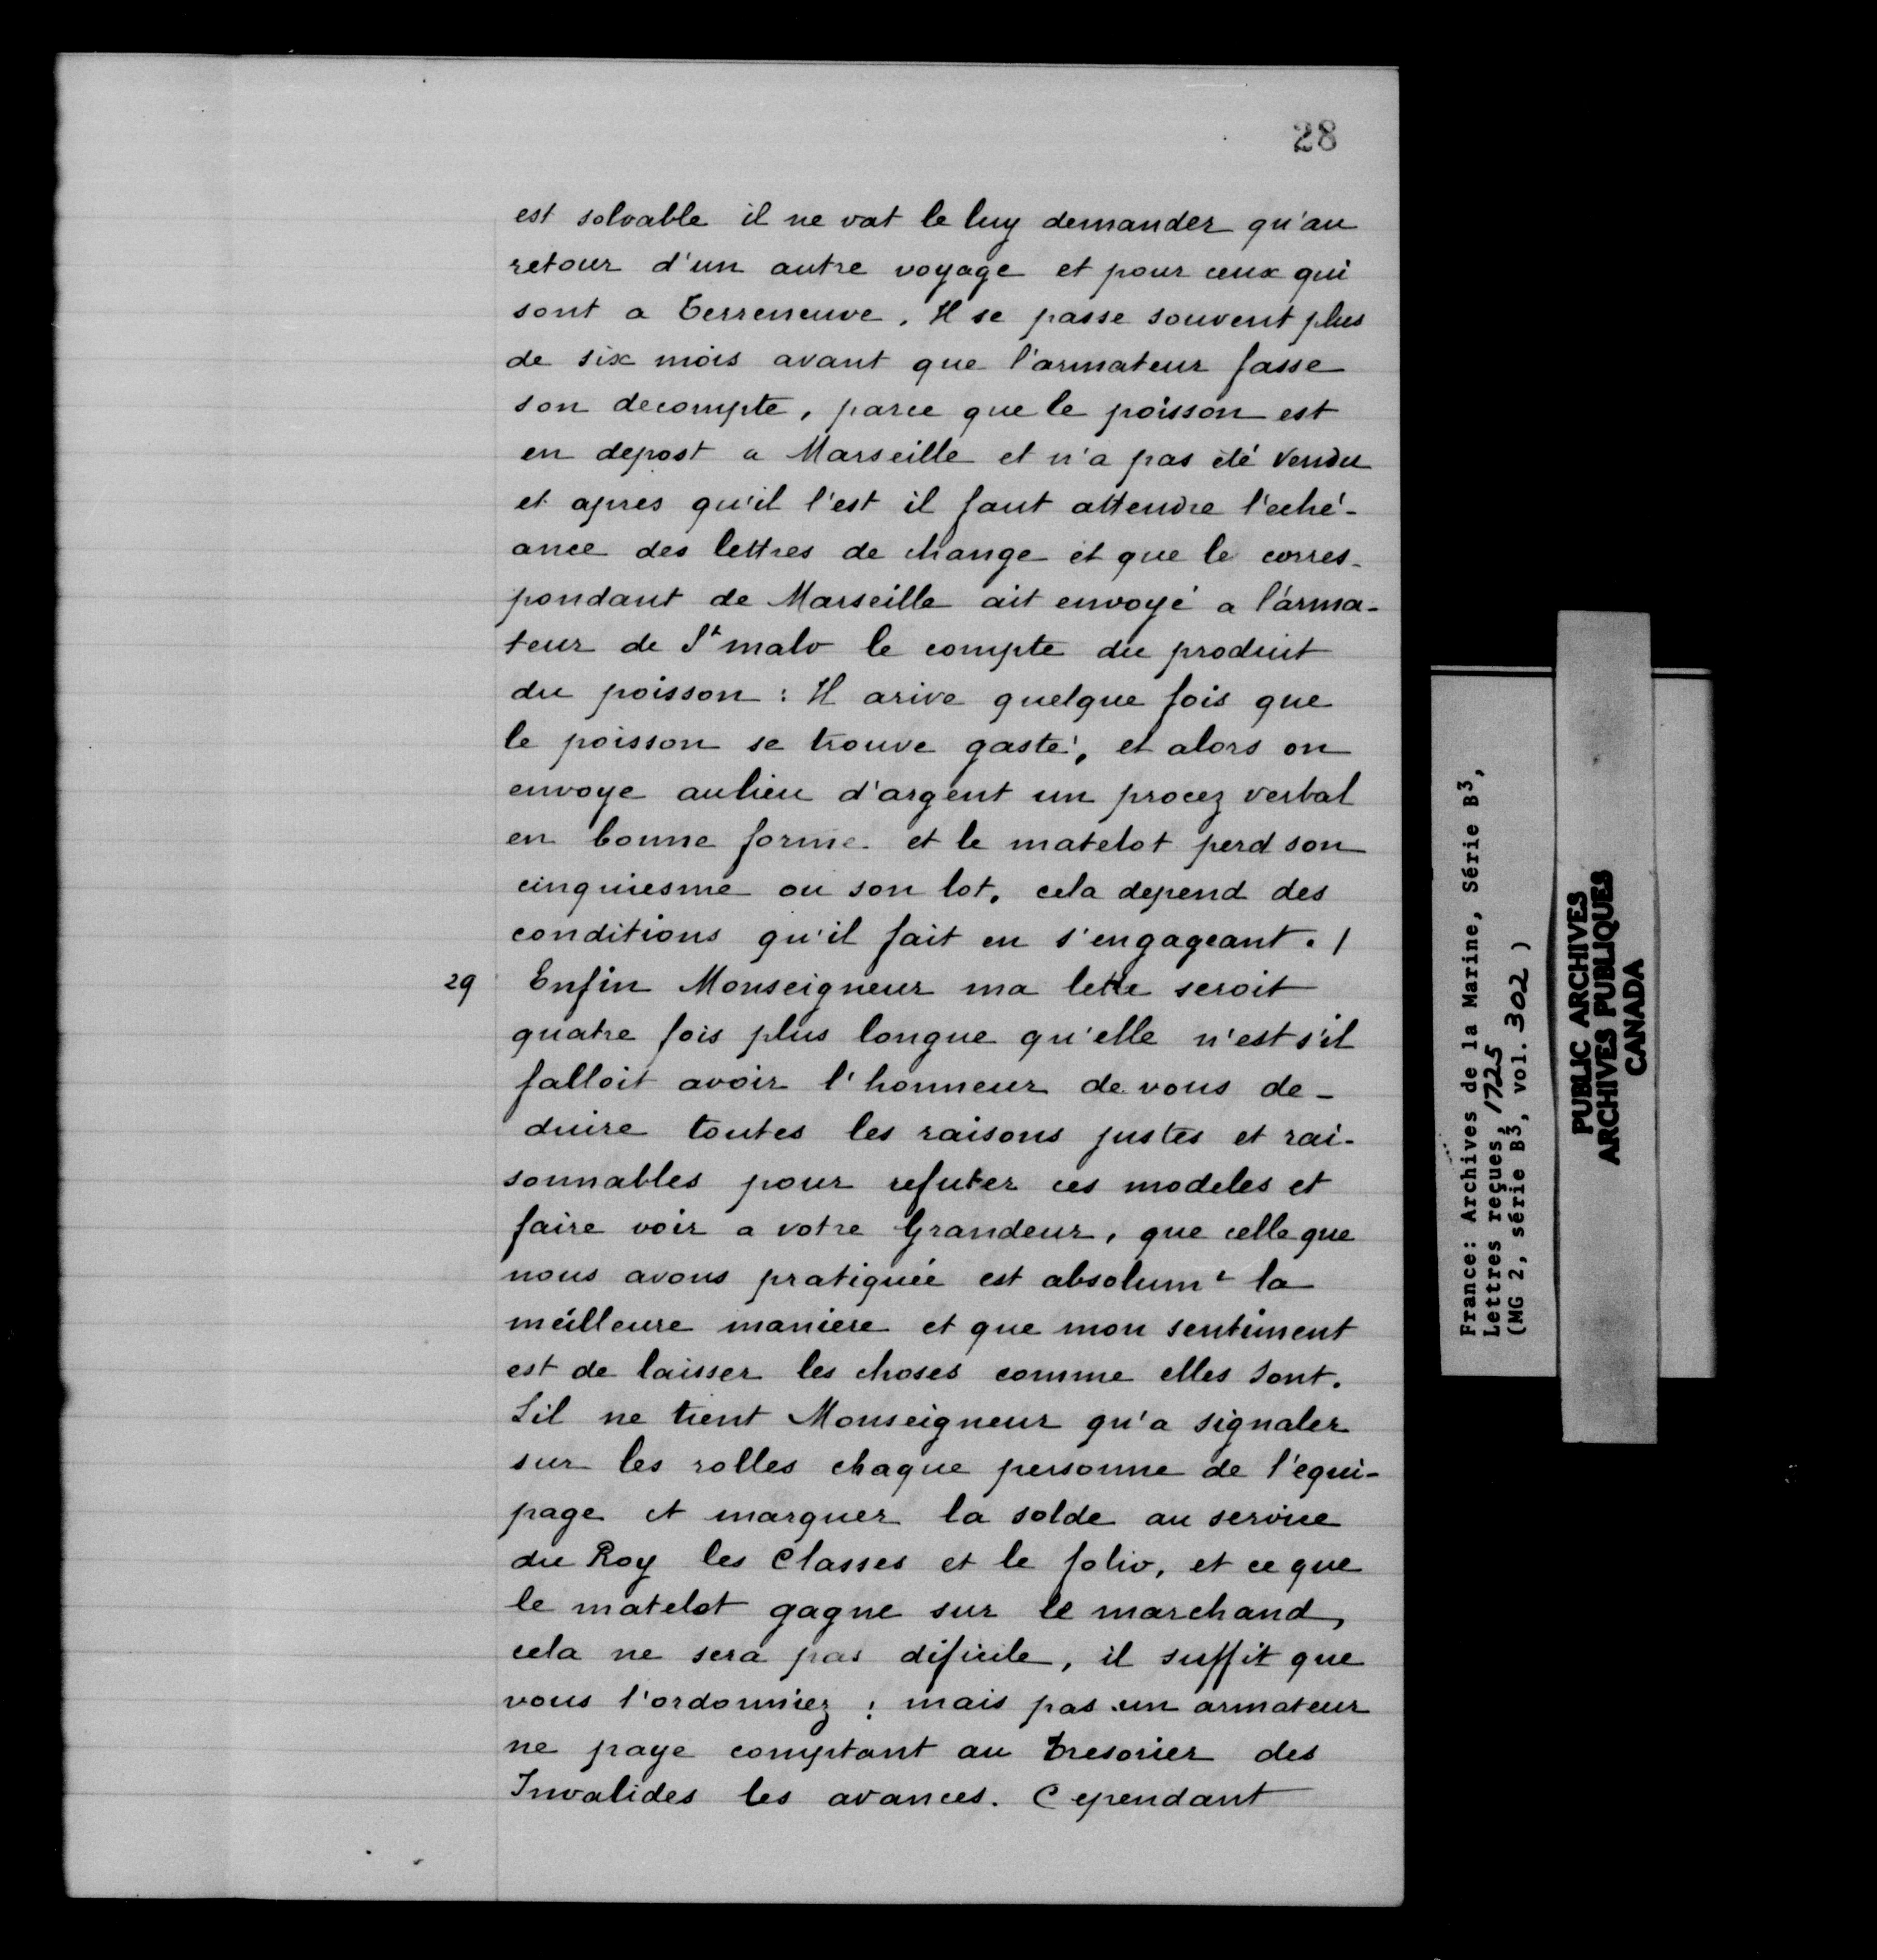 28
est solvable il ne vat le luy demander qu'au
retour d'un autre voyage et pour ceux qui
sont a Terreneuve. Il se passe souvent plus
de six mois avant que l'armateur fasse
son decompte, parce que le poisson est
en depost a Marseille et n'a pas été vendu
et apres qu'il l'est il faut attendre l'eché-
ance des lettres de change et que le corres-
pondant de Marseille ait envoyé a l'arma-
teur de St malo le compte du produit
du poisson : Il arive quelque fois que
le poisson se trouve gasté, et alors on
envoye aulieu d'argent un procez verbal
en bonne forme et le matelot perd son
cinquiesme ou son lot, cela depend des
conditions qu'il fait en s'engageant. /
29 Enfin Monseigneur ma lettre seroit
quatre fois plus longue qu'elle n'est s'il
falloit avoir l'honneur de vous de-
duire toutes les raisons justes et rai-
sonnables pour refuter ces modeles et
faire voir a votre Grandeur, que celle que
nous avons pratiquée est absolumt la
meilleure maniere et que mon sentiment
est de laisser les choses comme elles sont.
Sil ne tient Monseigneur qu'a signaler
sur les rolles chaque personne de l'equi-
page et marquer la solde au service
du Roy les Classes et le folio, et ce que
le matelot gagne sur le marchand,
cela ne sera pas dificile, il suffit que
vous l'ordonniez ; mais pas un armateur
ne paye comptant au Tresorier des
Invalides les avances. Cependant
France: Archives de la Marine, Série B3,
Lettres reçues, 1725
(MG 2, série B3, vol. 302)
PUBLIC ARCHIVES
ARCHIVES PUBLIQUES
CANADA